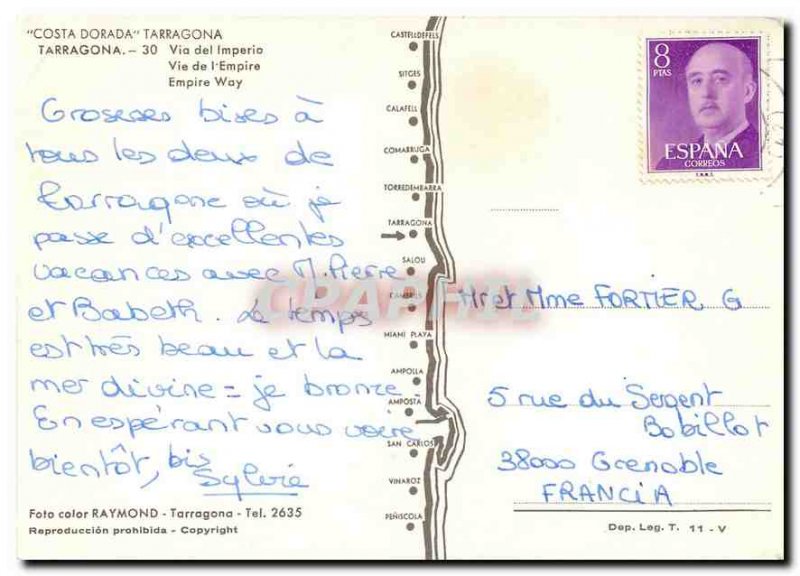 "COSTA DORADA" TARRAGONA
TARRAGONA. - 30 Via del Imperio
Vie de l'Empire
Empire Way
Grosses bises à
tous les deux de
Tarragone où je
passe d'excellentes
vacances avec M. Pierre
et Babeth. Le temps
est très beau et la
mer divine = je bronze.
En espérant vous voire
bientôt, bis
Sylvie
Foto color RAYMOND - Tarragona - Tel. 2635
Reproducción prohibida - Copyright
CASTELLDEFELS
SITGES
CALAFELL
COMARRUGA
TORREDEMBARRA
TARRAGONA
SALOU
CAMBRILS
MIAMI PLAYA
AMPOLLA
AMPOSTA
SAN CARLOS
VINAROZ
PEÑISCOLA
8
PTAS
ESPAÑA
CORREOS
Mr et Mme FORTIER G
5 rue du Sergent
Bobillot
38000 Grenoble
FRANCIA
Dep. Leg. T. 11 - V